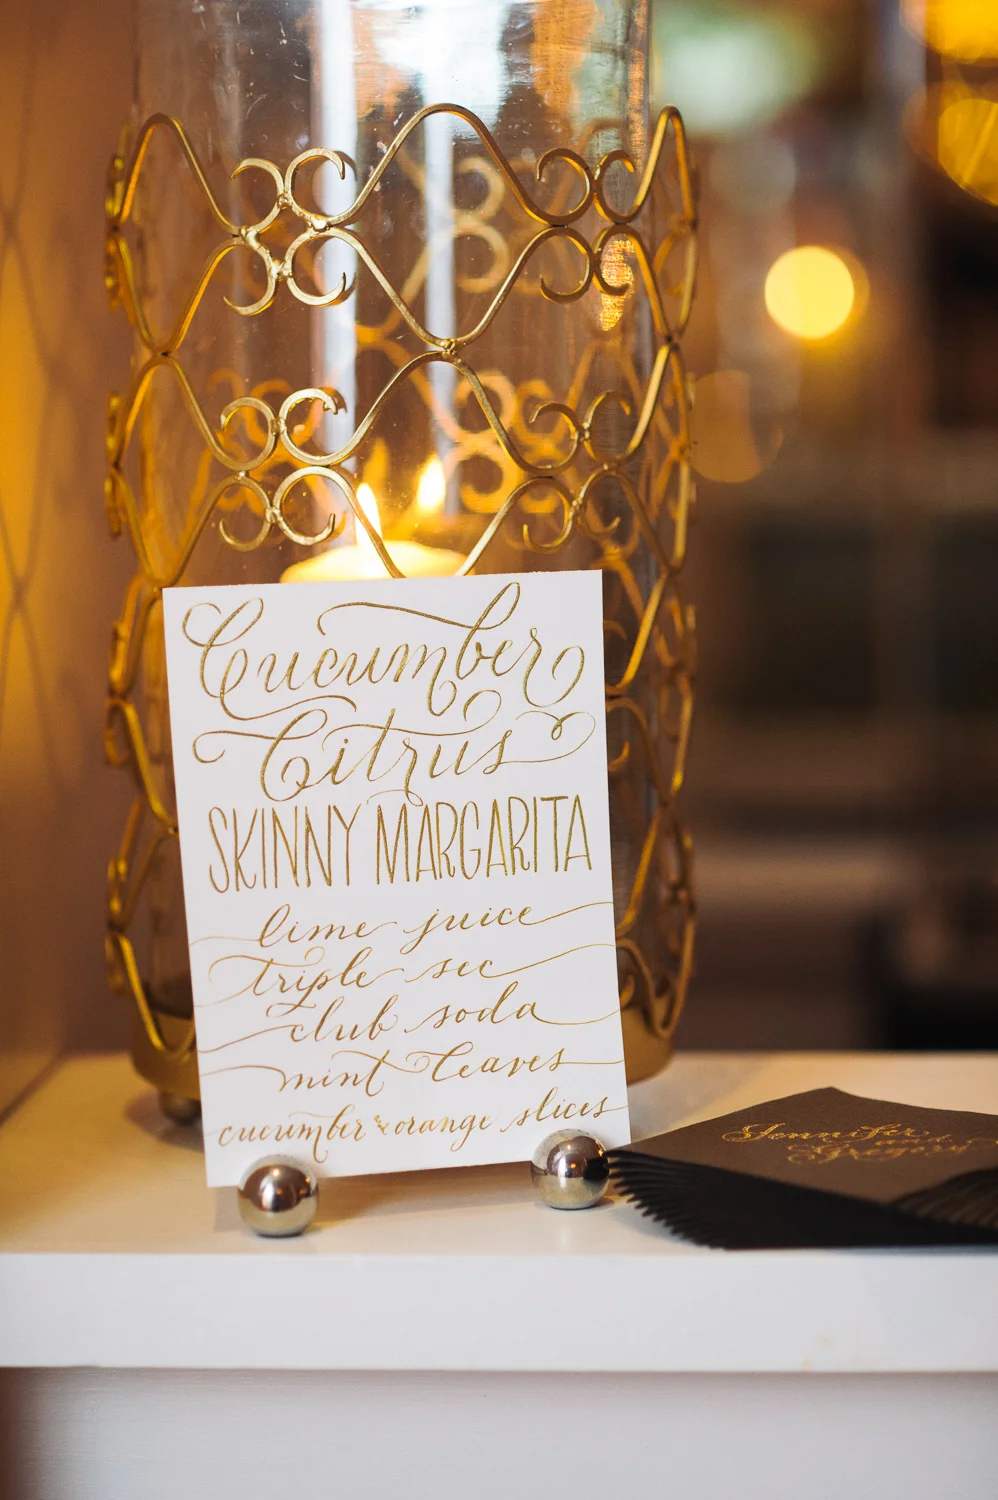 Cucumber
Citrus
SKINNY MARGARITA
lime juice
triple sec
club soda
mint leaves
cucumber & orange slices
Jennifer
and
Gregory